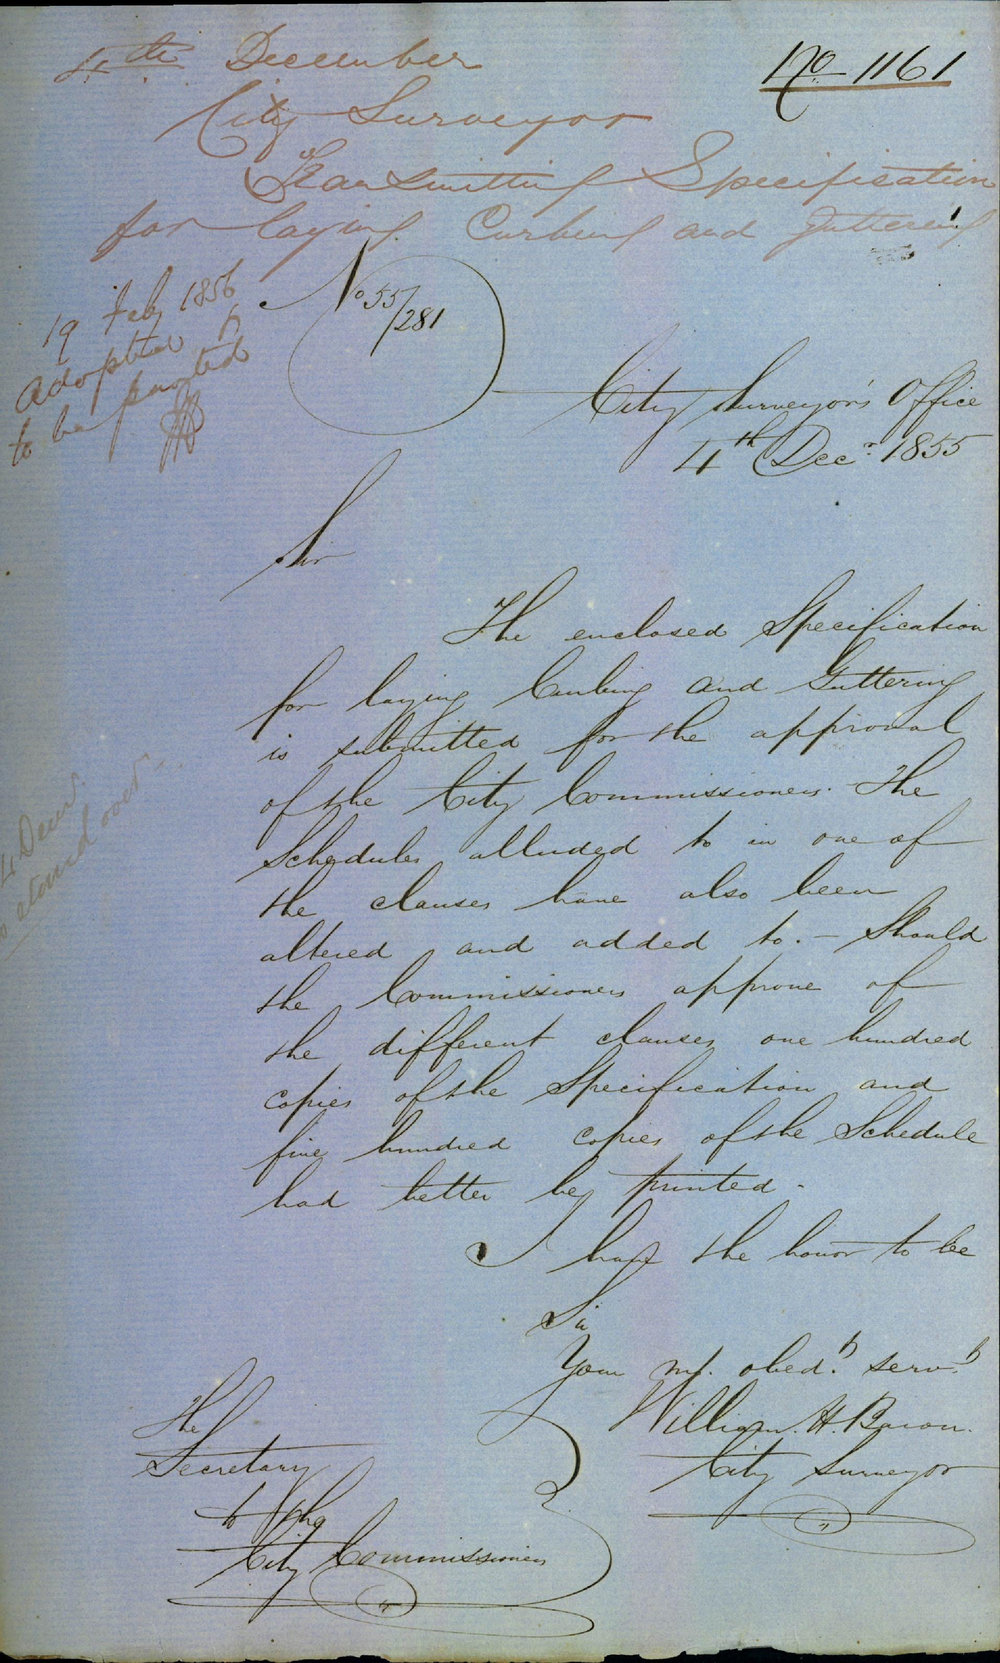 No 1161
4th December
City Surveyor
Transmitting Specification
for laying Curbing and Guttering
No 55/281
19 Feby 1856
Adopted &
to be printed
City Surveyor's Office
4th Decr 1855
Sir
The enclosed Specification
for laying Curbing and Guttering
is submitted for the approval
of the City Commissioners. The
Schedules alluded to in one of
the clauses have also been
altered and added to. – Should
the Commissioners approve of
the different clauses one hundred
copies of the Specification and
five hundred copies of the Schedule
had better be printed.
4 Decr
to stand over
I have the honor to be
Sir
Your mt. obedt. servt.
William. H. Bacon.
City Surveyor
The
Secretary
to the
City Commissioners